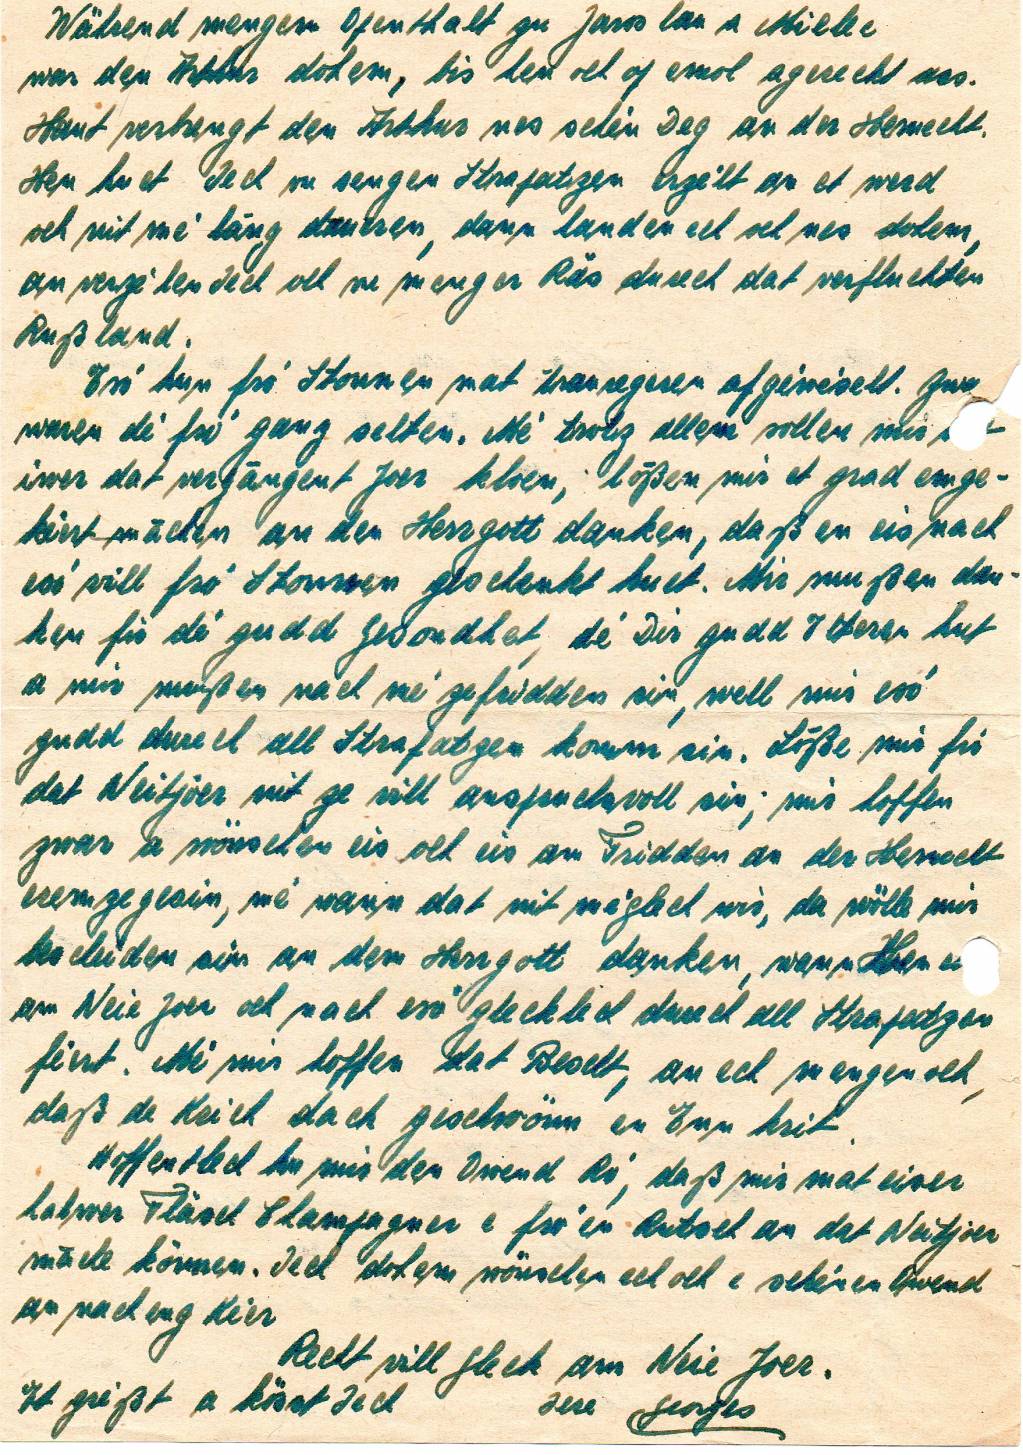 Während mengem Openthalt zu Jaroslau a Mielec
war den Arthur dohem, bis hen och op emol agereckt ass.
Haut verbrengt den Arthur nes schéin Deg an der Hemecht.
Hen huet Iech vu sengen Strapatzen erzélt an et werd
och nit mé läng daueren, dann landen ech och nes dohem,
an verzélen Iech och vu menger Räs duerch dat verfluchten
Rußland.
Esó hun fró Stonnen mat trauregeren ofgewieselt. Zwar
waren dé fró ganz selten. Mé trotz allem sollen mir
iwer dat vergängent Joer kloen; lößen mir et grad emge-
kéert mächen an den Herrgott danken, daß en eis nach
esó vill fró Stonnen geschenkt huet. Mir mußen dan-
ken fir dé gudd Gesondhet, dé Dir gudd Elteren hut
a mir mußen nach mé zefridden sin, well mir esó
gudd duerch all Strapatzen komm sin. Löße mir fir
dat Neitjoer nit ze vill anspruchsvoll sin; mir hoffen
zwar a wönschen eis och eis am Fridden an der Hemecht
eremzegesin, mé wann dat nit méglech wir, da wölle mir
bescheiden sin an dem Herrgott danken, wann Hen
am Neie Joer och nach esó glecklech duerch all Strapatzen
féert. Mé mir hoffen dat Bescht, an ech mengen och,
daß de Krich dach geschwönn en Enn krit.
Hoffentlech hu mir den Owend Ró, daß mir mat eiser
halwer Fläsch Champagner e fró'en Rutsch an dat Neitjoer
mäche können. Iech dohem wönschen ech och e schéinen Owend
an nach eng Kéer
Recht vill Gleck am Neie Joer.
Et gréißt a kösst Iech Iere Georges